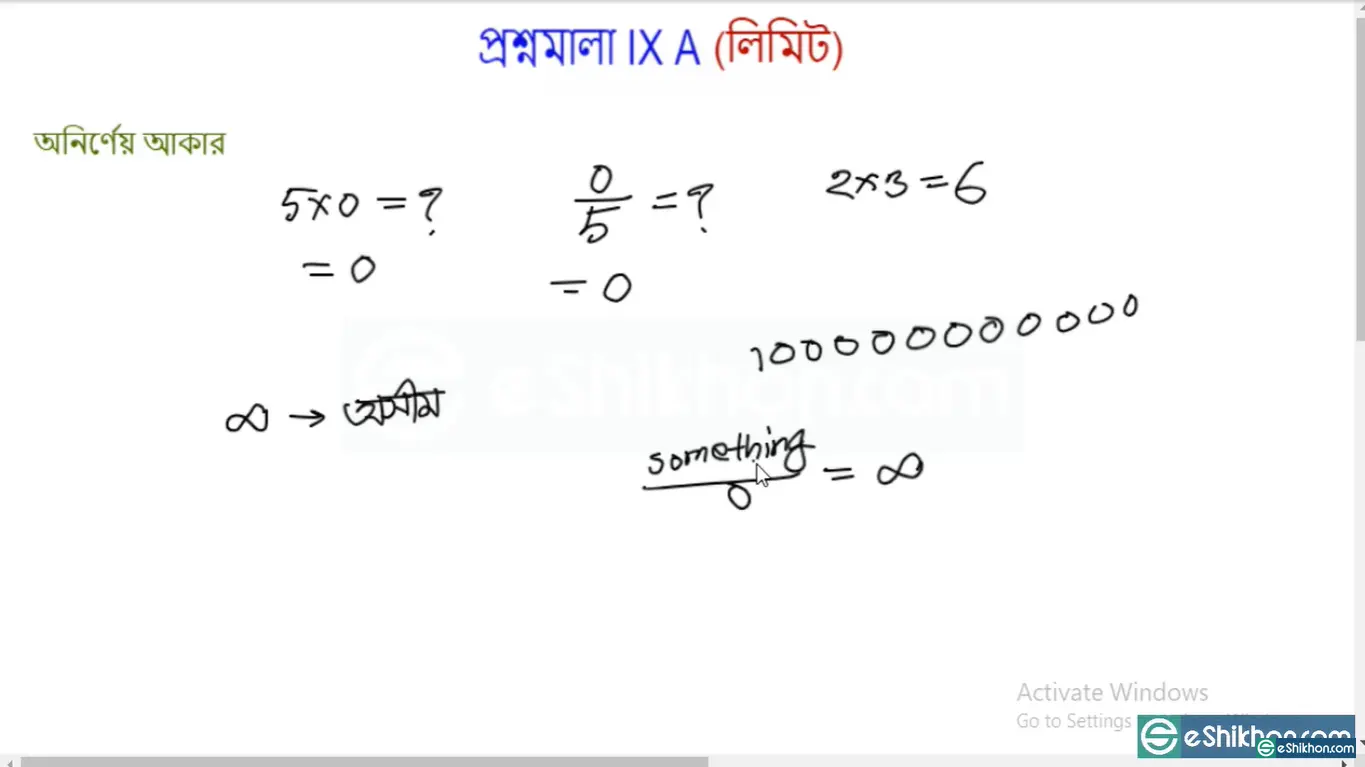 প্রশ্নমালা IX A (লিমিট)
অনির্ণেয় আকার
5×0 = ?
= 0
0/5 = ?
= 0
2×3 = 6
100000000000
∞ → অসীম
something/0 = ∞
eShikhon.com
Activate Windows
Go to Settings
eShikhon.com
eShikhon.com